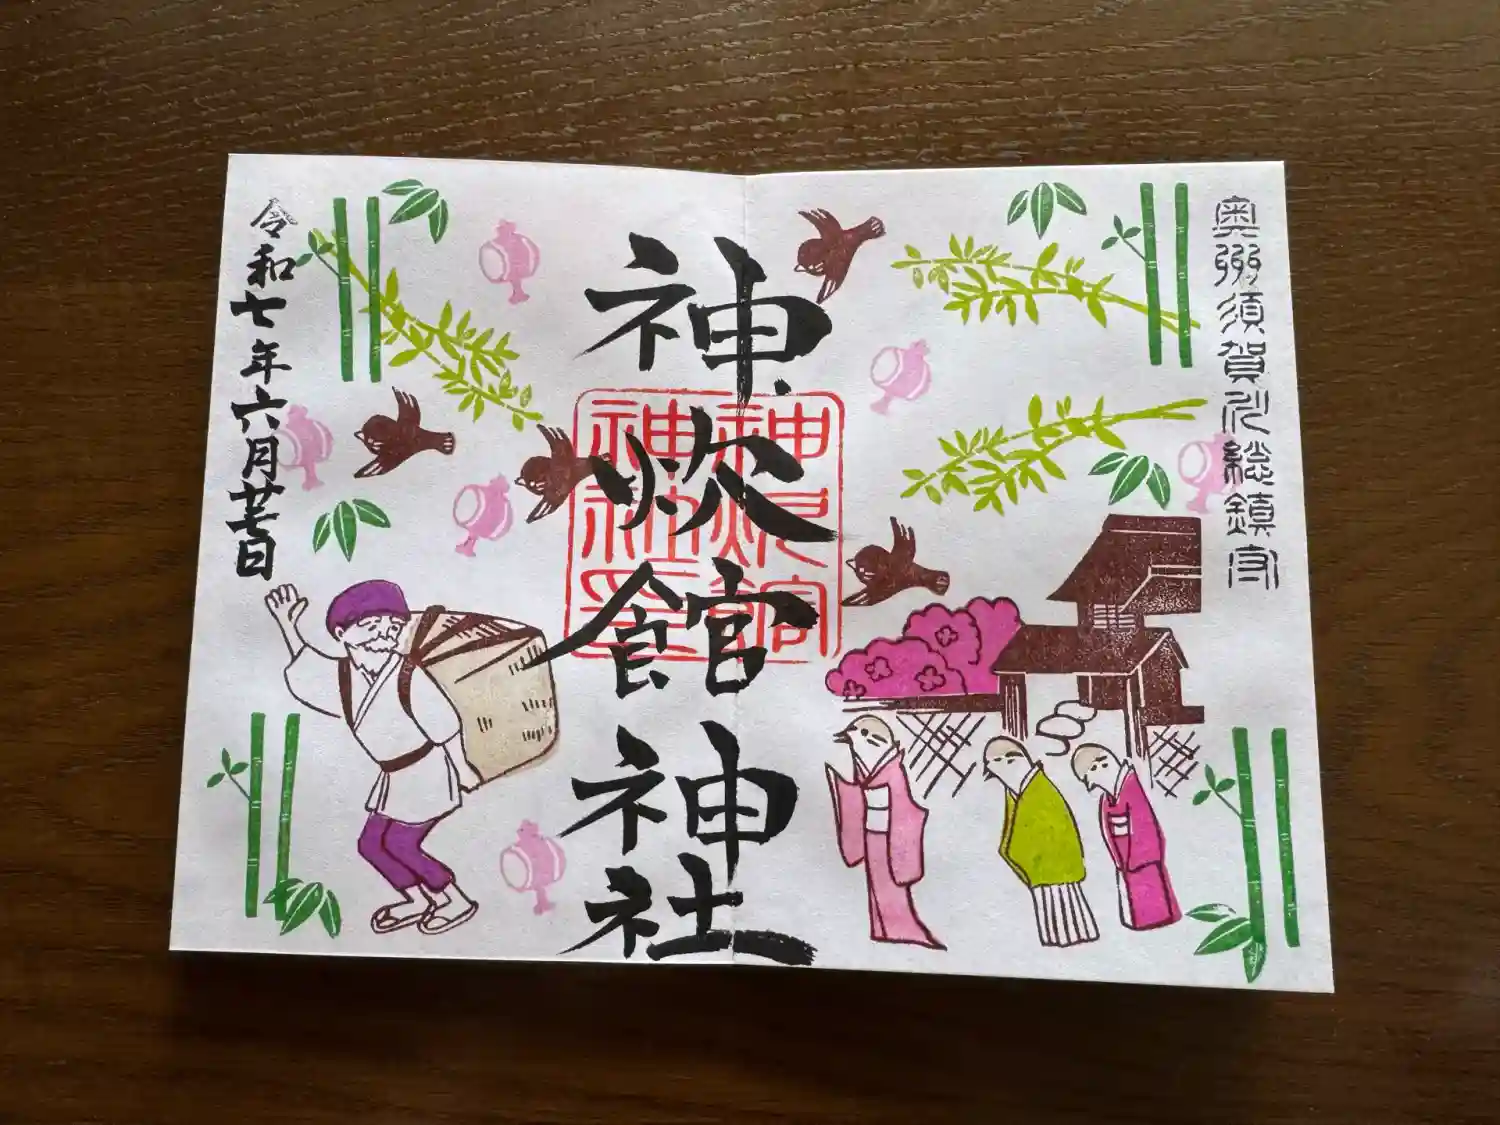 奥州須賀川総鎮守
神炊館神社
神炊館
神社印
令和七年六月廿日